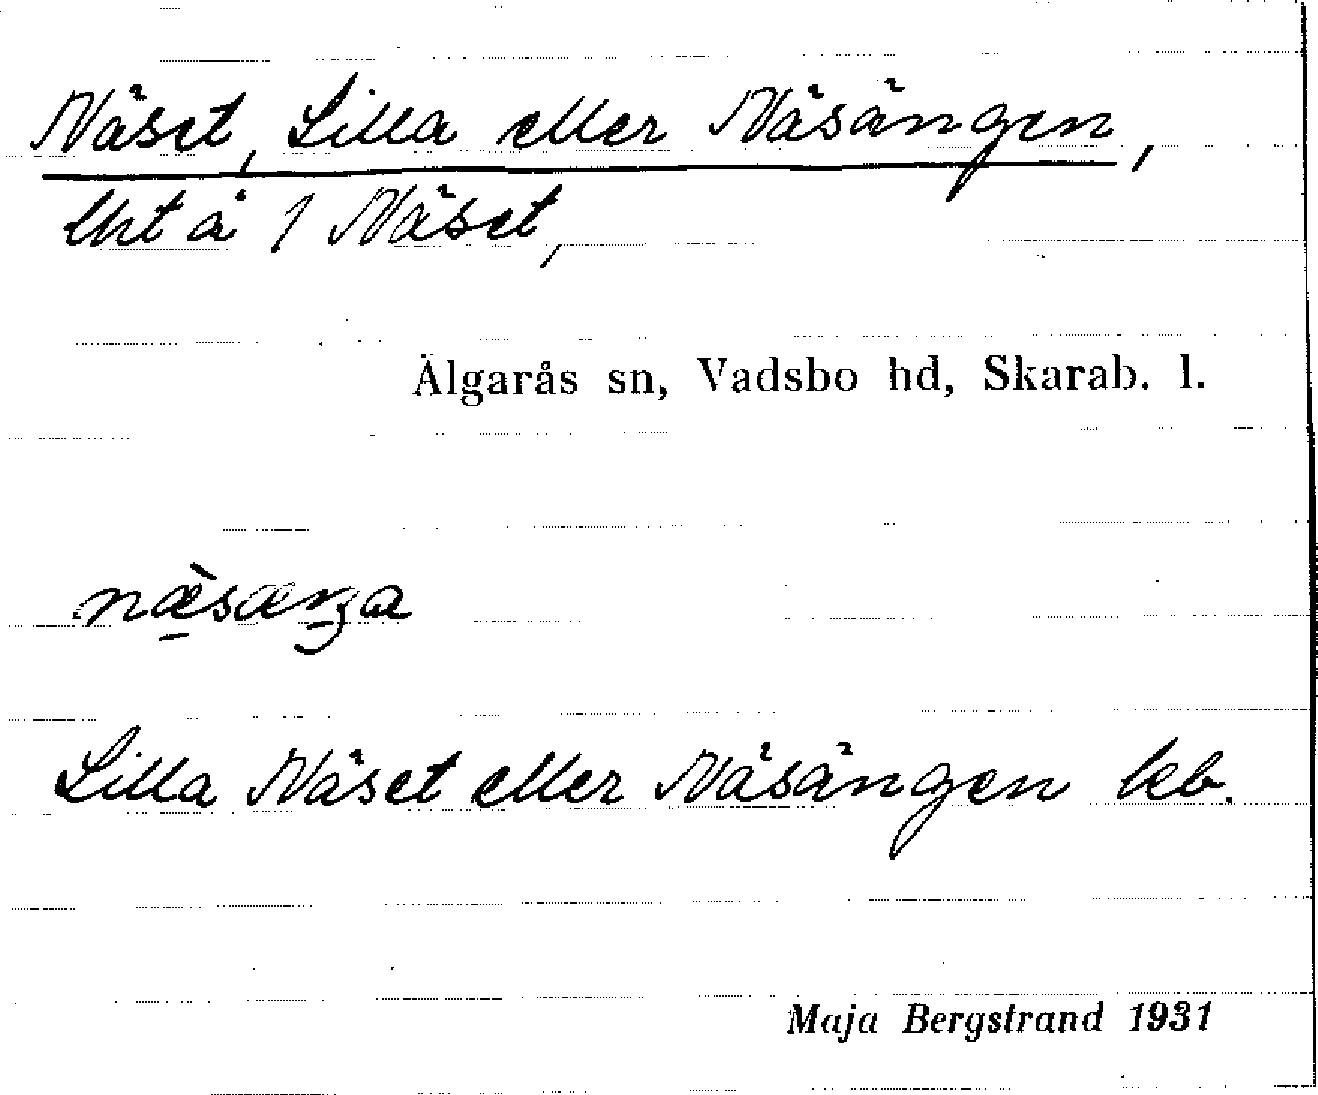 Näset, Lilla eller Näsängen,
lht å 1 Näset,
Älgarås sn, Vadsbo hd, Skarab. l.
næ̠̀sæŋa
Lilla Näset eller Näsängen kb.
Maja Bergstrand 1931